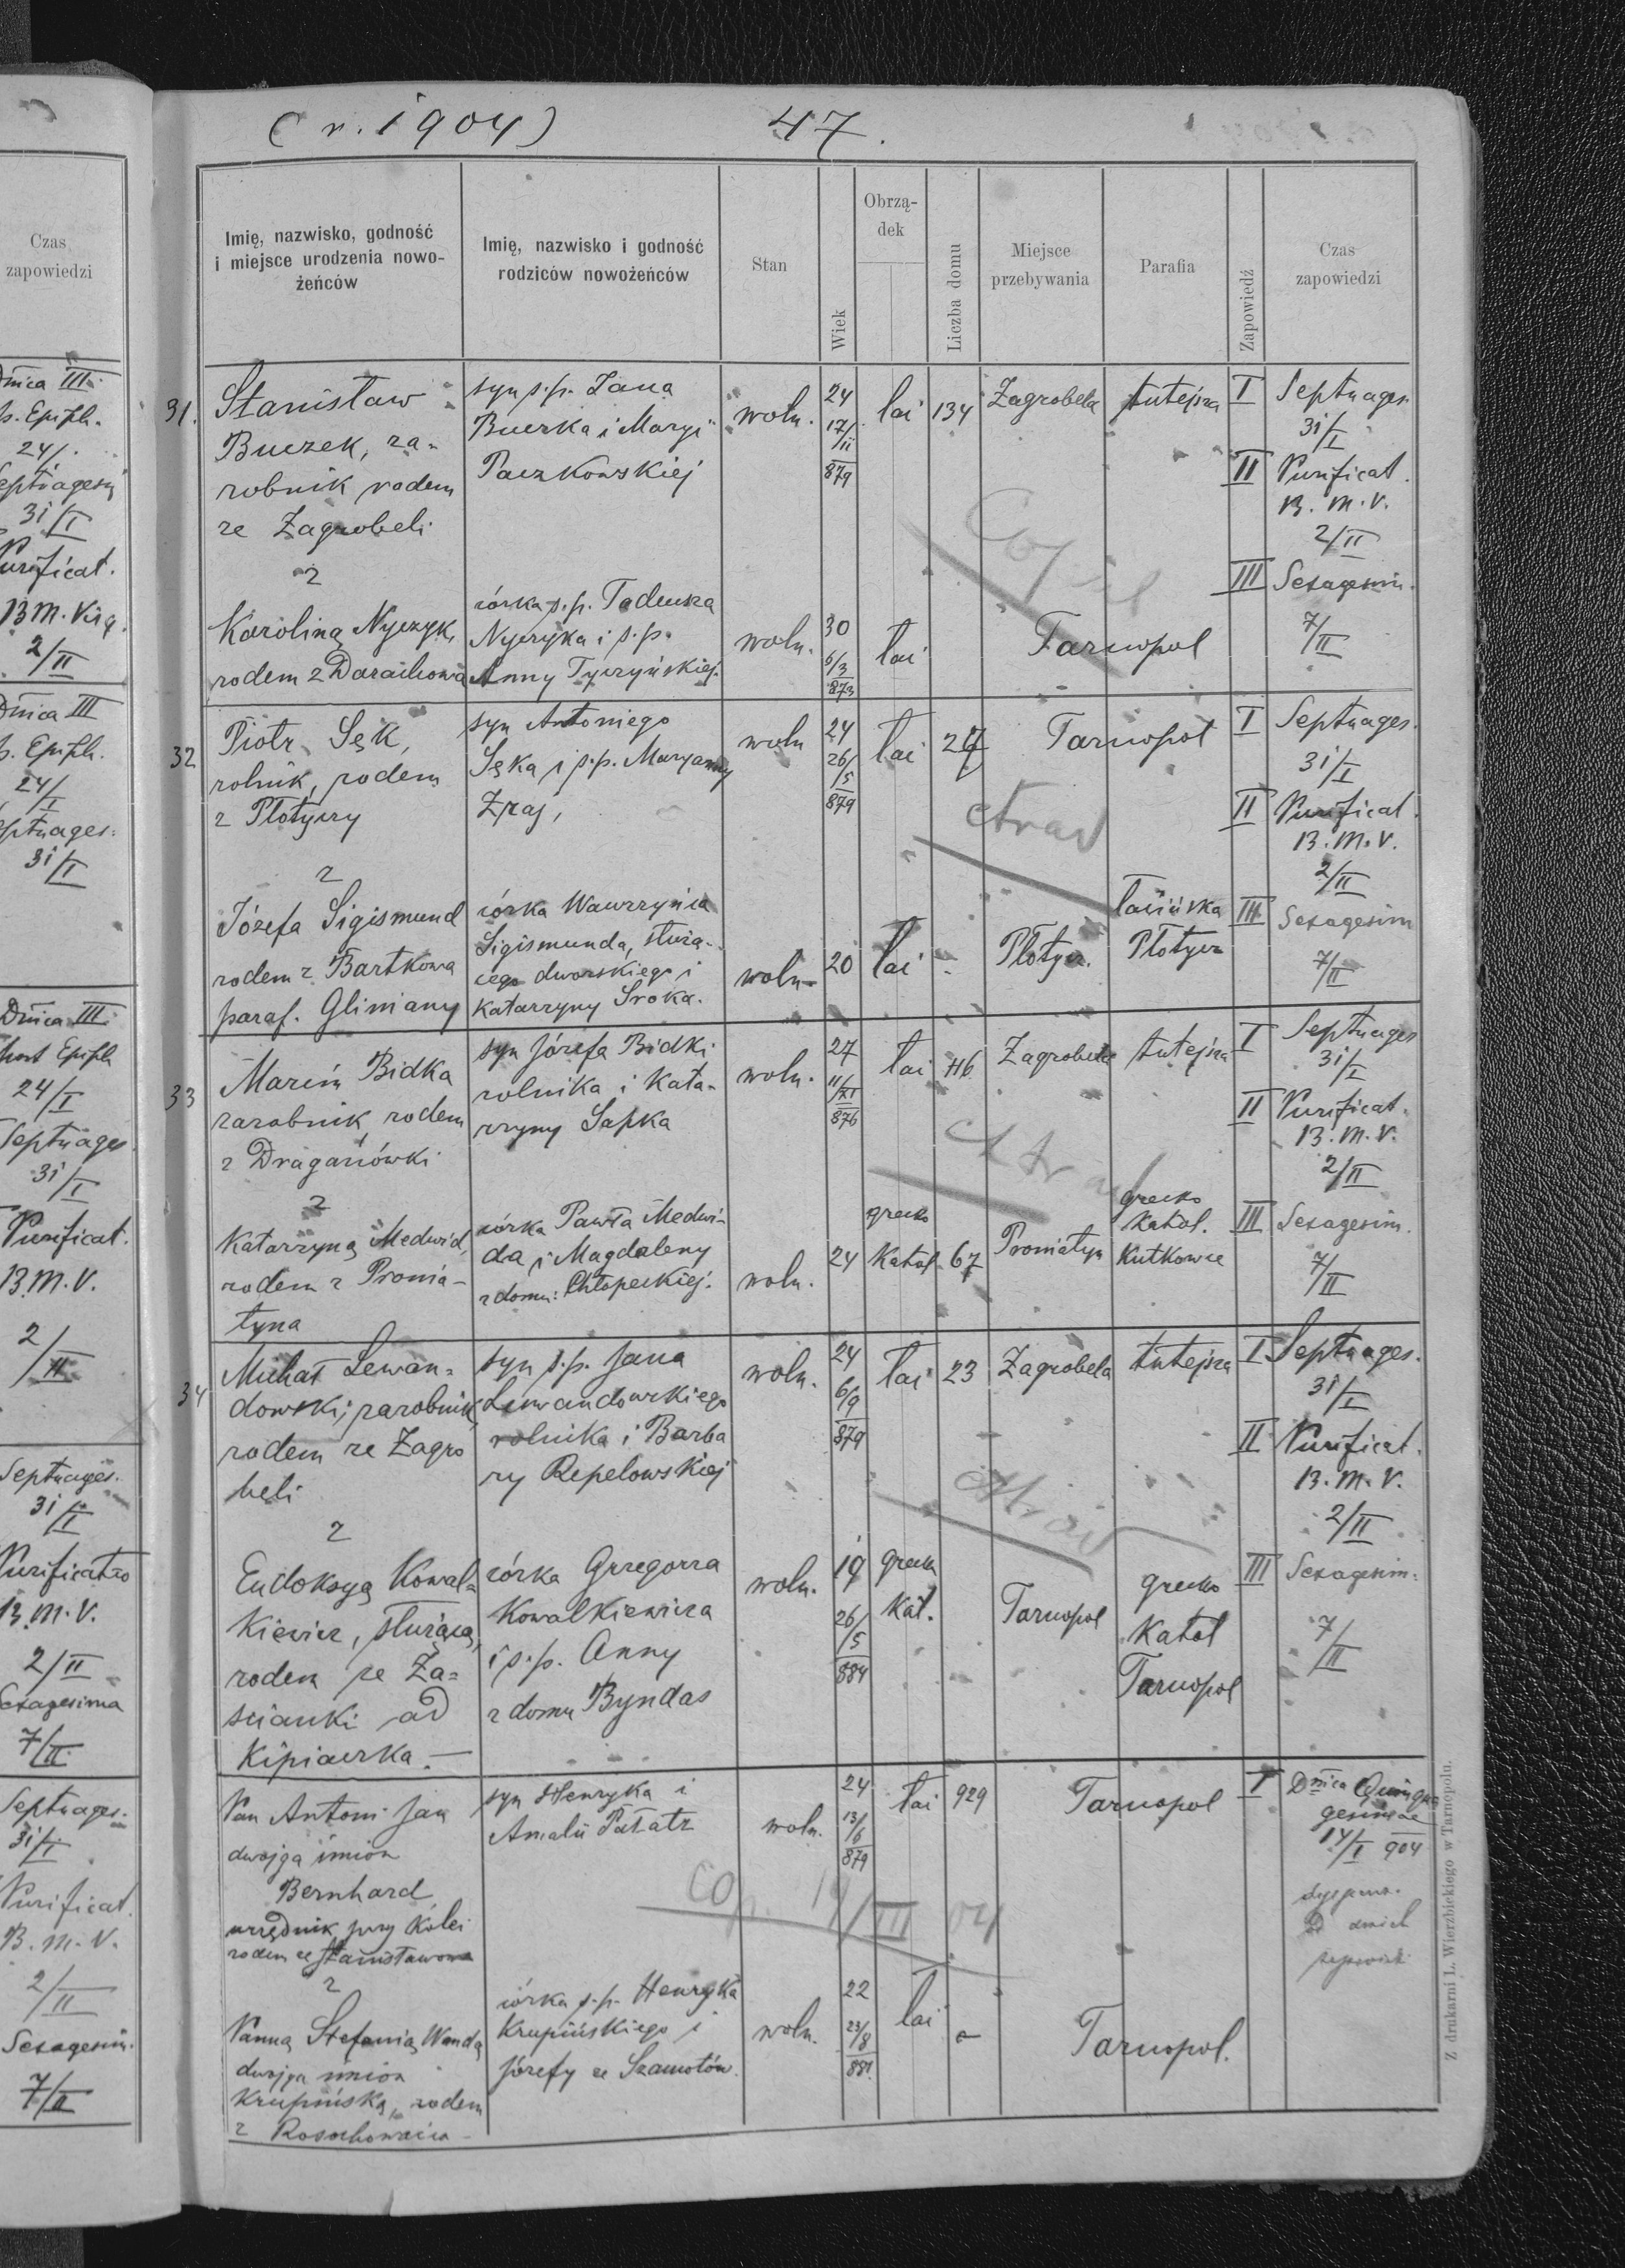 (r. 1904)
47.
Czas
zapowiedzi
Dnica III
p. Epiph.
24/.
Septuagesi
31/I
Purificat.
B M. Virg.
2/II
Dnica III
p. Epiph.
24/I
Septuages:
31/I
Dnica III
post Epiph
24/I
Septuages
31/I
Purificat.
B.M.V.
2/II
Septuages.
31/I
Purificatio
B.M.V.
2/II
Sexagesima
7/II
Septuages.
31/I
Purificat.
B.M.V.
2/II
Sexagesim.
7/II
Imię, nazwisko, godność
i miejsce urodzenia nowo-
żeńców
Imię, nazwisko i godność
rodziców nowożeńców
Stan
Wiek
Obrzą-
dek
Liczba domu
Miejsce
przebywania
Parafia
Zapowiedź
Czas
zapowiedzi
31.
Stanisław
Buczek, za-
robnik rodem
ze Zagrobeli
z
Karolina Nyczyk,
rodem z Darachowa
syn ś.p. Jana
Buczka i Maryi
Paczkowskiej
córka ś.p. Tadeusza
Nyczyka i ś.p.
Anny Tyczyńskiej
woln.
24
17/II
879
łać
134
Zagrobela
tutejsza
woln.
30
6/3
873
łać
Tarnopol
I Septuages.
31/I
II Purificat.
B. M. V.
2/II
III Sexagesim.
7/II
32
Piotr Sęk,
rolnik, rodem
z Płotyczy
z
Józefa Sigismund
rodem z Bartkowa
paraf. Gliniany
syn Antoniego
Sęka i ś.p. Maryanny
Zraj,
córka Wawrzyńca
Sigismunda, służą-
cego dworskiego i
Katarzyny Sroka.
woln
24
26/5
879
łać
Tarnopol
extrad
woln
20
łać
Płotycz.
łacińska
Płotycz
I Septuages.
31/I
II Purificat.
B. M. V.
2/II
III Sexagesim
7/II
33
Marcin Bidka
zarobnik, rodem
z Draganówki
z
Katarzyna Medwid,
rodem z Pronia-
tyna
syn Józefa Bidki
rolnika i Kata-
rzyny Sapka
córka Pawła Medwi-
da i Magdaleny
z domu: Chłopeckiej.
woln.
27
11/XI
876
łać
Zagrobela
tutejsza
woln.
24
grecko
Katol.
67
Proniatyn
grecko
Katol.
Kutkowce
I Septuages
31/I
II Purificat.
B. M. V.
2/II
III Sexagesim.
7/II
34
Michał Lewan-
dowski, zarobnik
rodem ze Zagro
beli
z
Eudoksya Kowal-
Kiewicz, służąca,
rodem ze Za-
ścianki ad
Kipiaczka.
syn ś.p. Jana
Lewandowskiego
rolnika i Barba
ry Repelowskiej
córka Grzegorza
Kowalkiewicza
i ś.p. Anny
z domu Byndas
woln.
24
6/9
879
łać
23
Zagrobela
tutejsza
woln.
19
26/5
884
grecko
Kat.
Tarnopol
grecko
Katol
Tarnopol
I Septuages.
31/I
II Purificat.
B. M. V.
2/II
III Sexagesim.
7/II
Pan Antoni Jan
dwojga imion
Bernhard,
urzędnik przy Kolei
rodem ze Stanisławowa
z
Panna Stefania Wanda
dwojga imion
Krupińska, rodem
z Rosochowaca
syn Henryka i
Amalii Pałatz
córka ś.p. Henryka
Krupińskiego i
Józefy ze Szamotów.
woln.
24
13/6
879
łać
929
Tarnopol
cop. 19/III 04
woln.
22
23/8
881.
łać
Tarnopol.
I Dnica Quinqua
gesimae
14/I 904
Z drukarni L. Wierzbickiego w Tarnopolu.